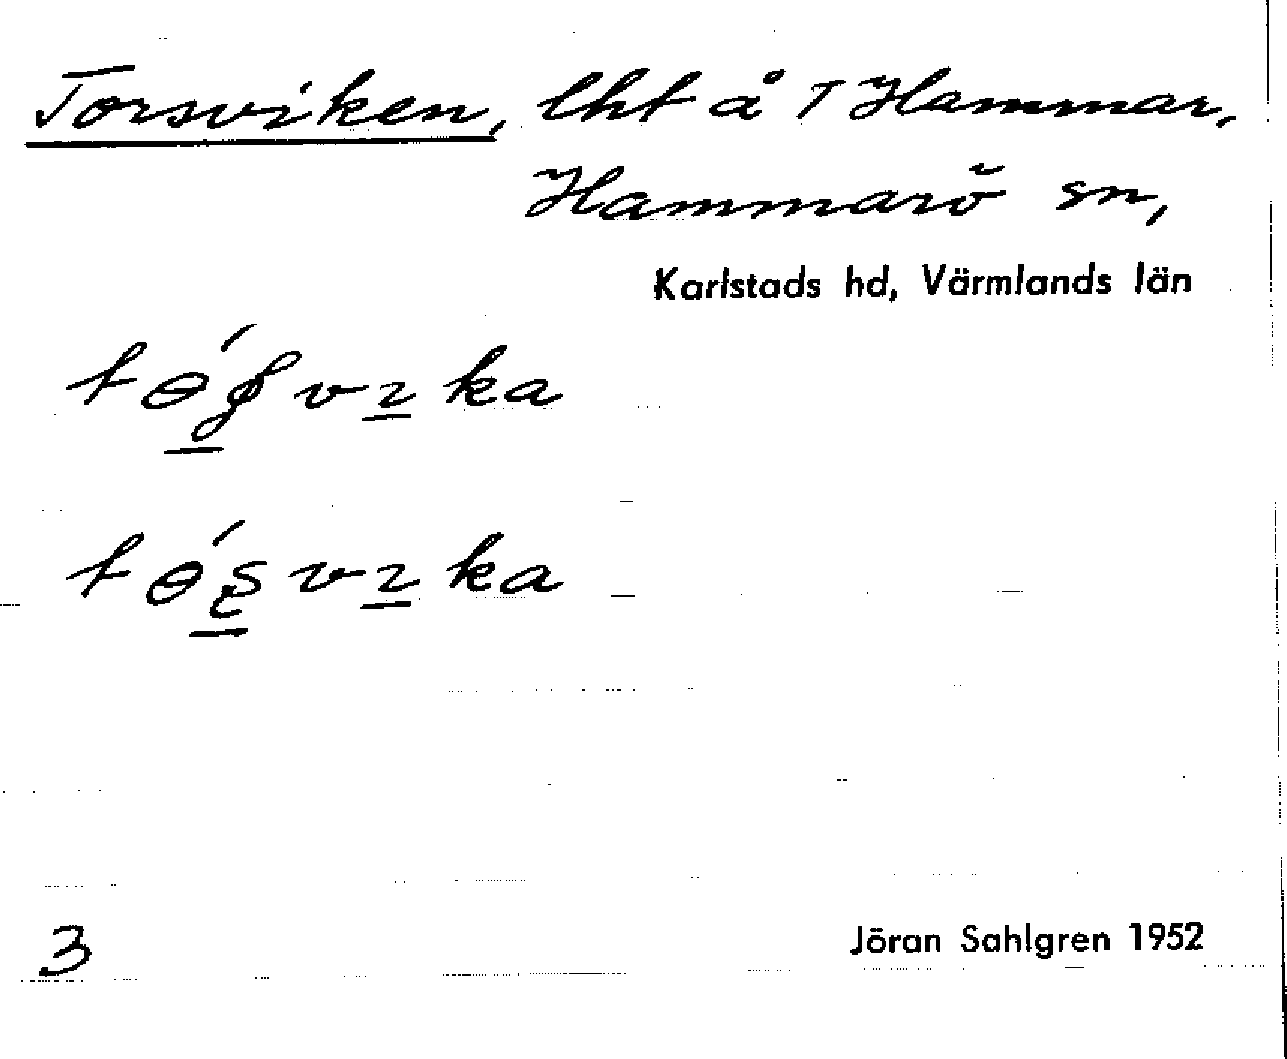 Torsviken, lht å T Hammar,
Hammarö sn,
Karlstads hd, Värmlands län
3
Jöran Sahlgren 1952